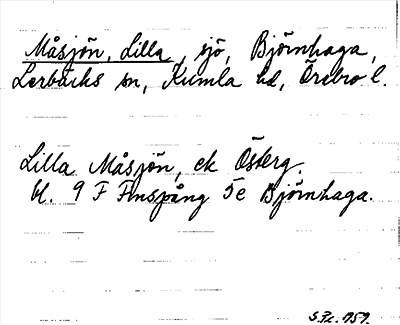 Måsjön, Lilla, sjö, Björnhaga,
Lerbäcks sn, Kumla hd, Örebro l.
Lilla Måsjön, ek Österg.
bl. 9 F Finspång 5e Björnhaga.